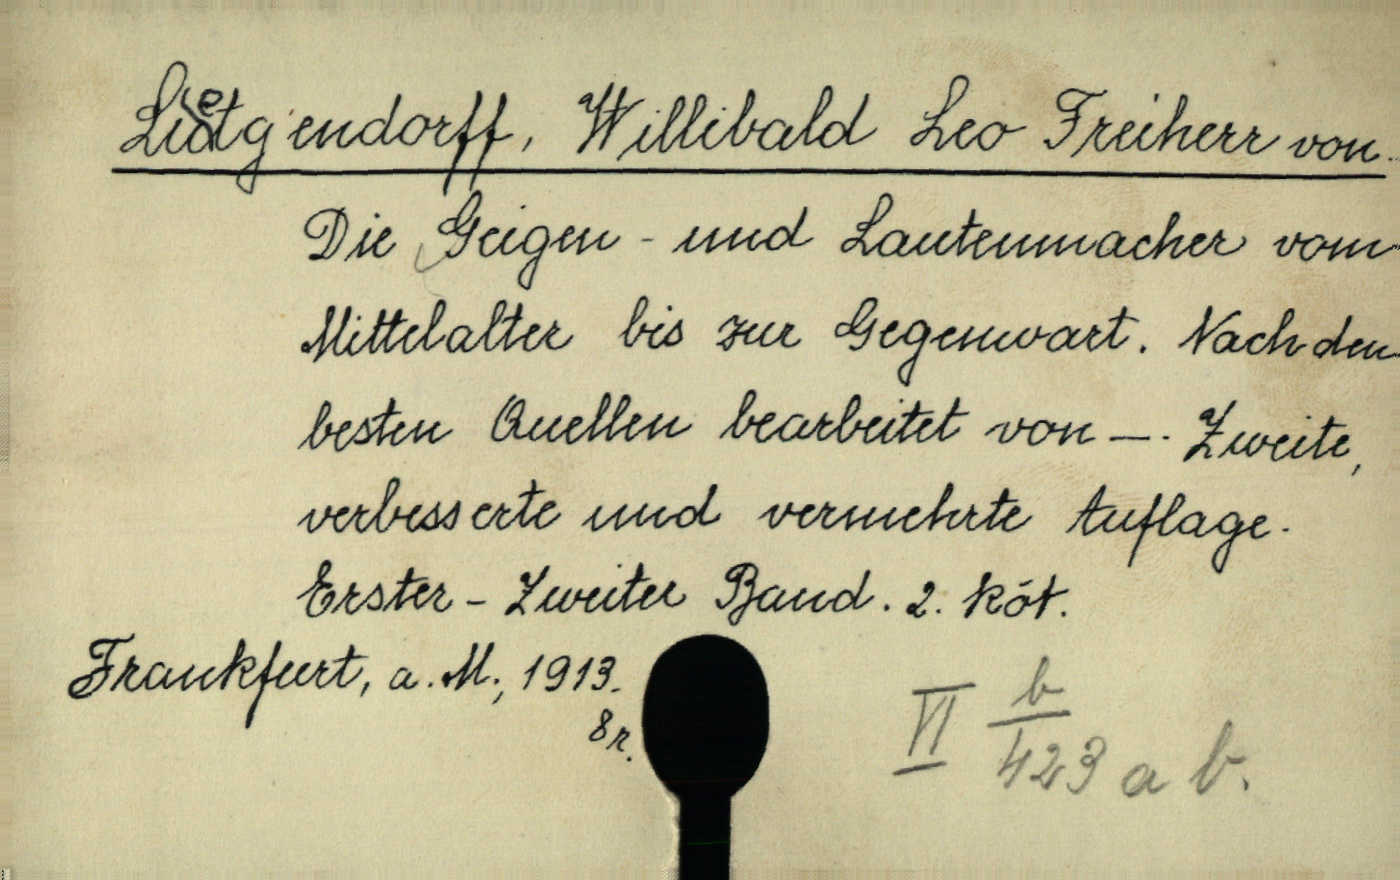 Lüetgendorff, Willibald Leo Freiherr von.
Die Geigen- und Lautenmacher vom
Mittelalter bis zur Gegenwart. Nach den
besten Quellen bearbeitet von —. Zweite,
verbesserte und vermehrte Auflage.
Erster - Zweiter Band. 2. köt.
Frankfurt, a. M., 1913.
8r.
VI b/423 a b.